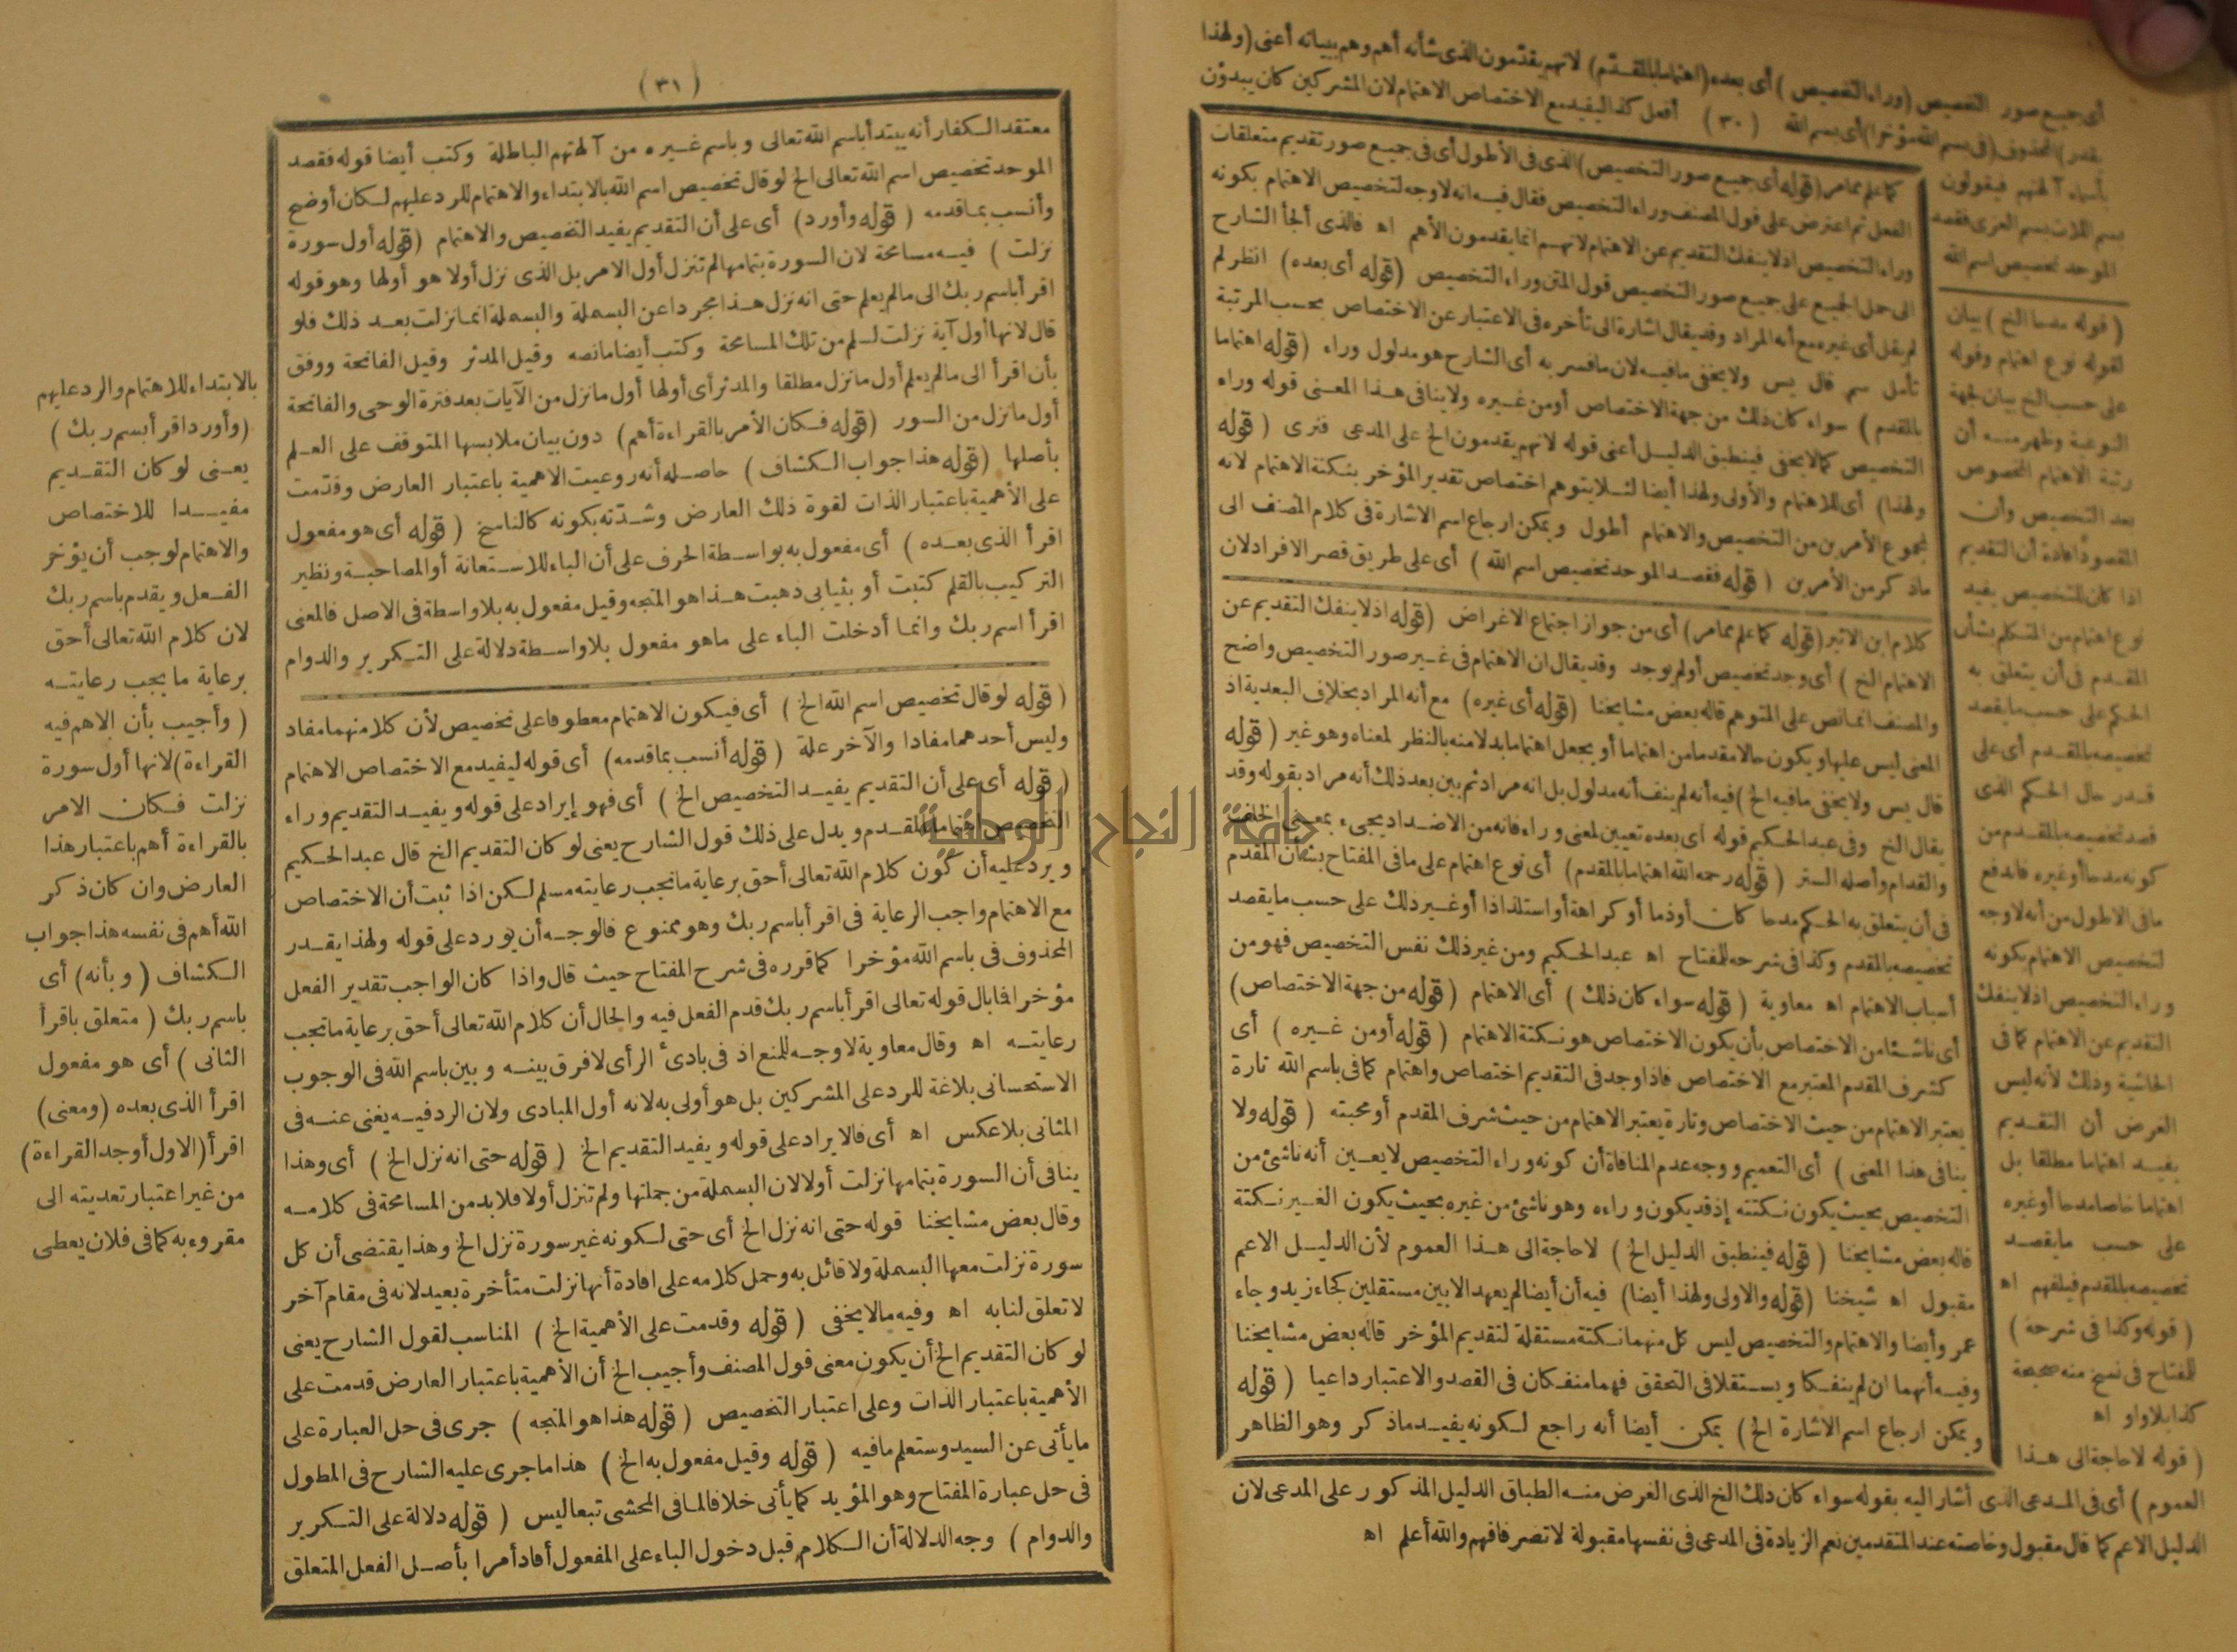 أى جميع صور التخصيص (وراء التخصيص) أى بعده (اهتماما بالمقدّم) لانهم يقدّمون الذى شأنه أهم وهم ببيانه أعنى (ولهذا
يقدر) المحذوف (فى بسم الله مؤخرا) أى بسم الله (٣٠) أفعل كذا ليفيد مع الاختصاص الاهتمام لان المشركين كان يبدؤن
بأسماء آلهتهم فيقولون
بسم اللات بسم العزى فقصد
الموحد تخصيص اسم الله
كما علم مما مر (قوله أى جميع صور التخصيص) الذى فى الأطول أى فى جميع صور تقديم متعلقات
الفعل ثم اعترض على قول المصنف وراء التخصيص فقال فيه انه لا وجه لتخصيص الاهتمام بكونه
وراء التخصيص اذ لا ينفك التقديم عن الاهتمام لانهم انما يقدمون الأهم اه فالذى ألجأ الشارح
الى حمل الجميع على جميع صور التخصيص قول المتن وراء التخصيص (قوله أى بعده) انظر لم
لم يقل أى غيره مع أنه المراد وقد يقال اشارة الى تأخره فى الاعتبار عن الاختصاص بحسب المرتبة
تأمل سم قال يس ولا يخفى ما فيه لان ما فسر به أى الشارح هو مدلول وراء (قوله اهتماما
بالمقدم) سواء كان ذلك من جهة الاختصاص أو من غيره ولا ينافى هذا المعنى قوله وراء
التخصيص كما لا يخفى فينطبق الدليل أعنى قوله لانهم يقدمون الخ على المدعى فترى (قوله
ولهذا) أى للاهتمام والأولى ولهذا أيضا لئلا يتوهم اختصاص تقدير المؤخر بنكتة الاهتمام لانه
لمجموع الأمرين من التخصيص والاهتمام أطول ويمكن ارجاع اسم الاشارة فى كلام المصنف الى
ما ذكر من الأمرين (قوله فقصد الموحد تخصيص اسم الله) أى على طريق قصر الافراد لان
كلام ابن الاثير (قوله كما علم مما مر) أى من جواز اجتماع الاغراض (قوله اذ لا ينفك التقديم عن
الاهتمام الخ) أى وجد تخصيص أو لم يوجد وقد يقال ان الاهتمام فى غير صور التخصيص واضح
والمصنف انما نص على المتوهم قاله بعض مشايخنا (قوله أى غيره) مع أنه المراد بخلاف البعدية اذ
المعنى ليس عليها ويكون حالا مقدما من اهتماما أو يجعل اهتماما بدلا منه بالنظر لمعناه وهو غير (قوله
قال يس ولا يخفى ما فيه الخ) فيه أنه لم ينف أنه مدلول بل انه مراد ثم بين بعد ذلك أنه مراد بقوله وقد
يقال الخ وفى عبد الحكيم قوله أى بعده تعيين لمعنى وراء فانه من الاضداد يجىء بمعنى الخلف
والقدام وأصله الستر (قوله رحمه الله اهتماما بالمقدم) أى نوع اهتمام على ما فى المفتاح بشأن المقدم
فى أن يتعلق به الحكم مدحا كان أو ذما أو كراهة أو استلذاذا أو غير ذلك على حسب ما يقصد
تخصيصه بالمقدم وكذا فى شرحه للمفتاح اه عبد الحكيم ومن غير ذلك نفس التخصيص فهو من
أسباب الاهتمام اه معاوية (قوله سواء كان ذلك) أى الاهتمام (قوله من جهة الاختصاص)
أى ناشئا من الاختصاص بأن يكون الاختصاص هو نكتة الاهتمام (قوله أو من غيره) أى
كشرف المقدم المعتبر مع الاختصاص فاذا وجد فى التقديم اختصاص واهتمام كما فى باسم الله تارة
يعتبر الاهتمام من حيث الاختصاص وتارة يعتبر الاهتمام من حيث شرف المقدم أو محبته (قوله ولا
ينافى هذا المعنى) أى التعميم ووجه عدم المنافاة أن كونه وراء التخصيص لا يعين أنه ناشئ من
التخصيص بحيث يكون نكتته إذ قد يكون وراءه وهو ناشئ من غيره بحيث يكون الغير نكتة
قاله بعض مشايخنا (قوله فينطبق الدليل الخ) لا حاجة الى هذا العموم لأن الدليل الاعم
مقبول اه شيخنا (قوله والاولى ولهذا أيضا) فيه أن أيضا لم يعهد الا بين مستقلين كجاء زيد وجاء
عمر وأيضا والاهتمام والتخصيص ليس كل منهما نكتة مستقلة لتقديم المؤخر قاله بعض مشايخنا
وفيه أنهما ان لم ينفكا ويستقلا فى التحقق فهما منفكان فى القصد والاعتبار داعيا (قوله
ويمكن ارجاع اسم الاشارة الخ) يمكن أيضا أنه راجع لكونه يفيد ما ذكر وهو الظاهر
(قوله مدحا الخ) بيان
لقوله نوع اهتمام وقوله
على حسب الخ بيان لجهة
النوعية وظهر منه أن
رتبة الاهتمام المخصوص
بعد التخصيص وأن
المقصود افادة أن التقديم
اذا كان للتخصيص يفيد
نوع اهتمام من المتكلم بشأن
المقدم فى أن يتعلق به
الحكم على حسب ما يقصد
تخصيصه بالمقدم أى على
قدر حال الحكم الذى
قصد تخصيصه بالمقدم من
كونه مدحا أو غيره فاندفع
ما فى الاطول من أنه لا وجه
لتخصيص الاهتمام بكونه
وراء التخصيص اذ لا ينفك
التقديم عن الاهتمام كما فى
الحاشية وذلك لأنه ليس
الغرض أن التقديم
يفيد اهتماما مطلقا بل
اهتماما خاصا مدحا أو غيره
على حسب ما يقصد
تخصيصه بالمقدم فيلفهم اه
(قوله وكذا فى شرحه)
للمفتاح فى نسخ منه صحيحة
كذا بلا واو اه
(قوله لا حاجة الى هذا
العموم) أى فى المدعى الذى أشار اليه بقوله سواء كان ذلك الخ الذى الغرض منه انطباق الدليل المذكور على المدعى لان
الدليل الاعم كما قال مقبول وخاصته عند المتقدمين نعم الزيادة فى المدعى فى نفسها مقبولة لا تضر فافهم والله أعلم اه
(٣١)
معتقد الكفار أنه يبتدأ باسم الله تعالى وباسم غيره من آلهتهم الباطلة وكتب أيضا قوله فقصد
الموحد تخصيص اسم الله تعالى الخ لو قال تخصيص اسم الله بالابتداء والاهتمام للرد عليهم لكان أوضح
وأنسب بما قدمه (قوله وأورد) أى على أن التقديم يفيد التخصيص والاهتمام (قوله أول سورة
نزلت) فيه مسامحة لان السورة بتمامها لم تنزل أول الامر بل الذى نزل أولا هو أولها وهو قوله
اقرأ باسم ربك الى ما لم يعلم حتى انه نزل هذا مجردا عن البسملة والبسملة انما نزلت بعد ذلك فلو
قال لانها أول آية نزلت لسلم من تلك المسامحة وكتب أيضا ما نصه وقيل المدثر وقيل الفاتحة ووفق
بأن اقرأ الى ما لم يعلم أول ما نزل مطلقا والمدثر أى أولها أول ما نزل من الآيات بعد فترة الوحى والفاتحة
أول ما نزل من السور (قوله فكان الأمر بالقراءة أهم) دون بيان ملابسها المتوقف على العلم
بأصلها (قوله هذا جواب الكشاف) حاصله أنه روعيت الاهمية باعتبار العارض وقدّمت
على الأهمية باعتبار الذات لقوة ذلك العارض وشدّته بكونه كالناسخ (قوله أى هو مفعول
اقرأ الذى بعده) أى مفعول به بواسطة الحرف على أن الباء للاستعانة أو المصاحبة ونظير
التركيب بالقلم كتبت أو بثيابى ذهبت هذا هو المتجه وقيل مفعول به بلا واسطة فى الاصل فالمعنى
اقرأ اسم ربك وانما أدخلت الباء على ما هو مفعول بلا واسطة دلالة على التكرير والدوام
(قوله لو قال تخصيص اسم الله الخ) أى فيكون الاهتمام معطوفا على تخصيص لأن كلا منهما مفاد
وليس أحدهما مفادا والآخر علة (قوله أنسب بما قدمه) أى قوله ليفيد مع الاختصاص الاهتمام
(قوله أى على أن التقديم يفيد التخصيص الخ) أى فهو إيراد على قوله ويفيد التقديم وراء
التخصيص اهتماما بالمقدم ويدل على ذلك قول الشارح يعنى لو كان التقديم الخ قال عبد الحكيم
ويرد عليه أن كون كلام الله تعالى أحق برعاية ما تجب رعايته مسلم لكن اذا ثبت أن الاختصاص
مع الاهتمام واجب الرعاية فى اقرأ باسم ربك وهو ممنوع فالوجه أن يورد على قوله ولهذا يقدر
المحذوف فى باسم الله مؤخرا كما قرره فى شرح المفتاح حيث قال واذا كان الواجب تقدير الفعل
مؤخرا فما بال قوله تعالى اقرأ باسم ربك قدم الفعل فيه والحال أن كلام الله تعالى أحق برعاية ما تجب
رعايته اه وقال معاوية لا وجه للمنع اذ فى بادئ الرأى لا فرق بينه وبين باسم الله فى الوجوب
الاستحسانى بلاغة للرد على المشركين بل هو أولى به لانه أول المبادى ولان الرد فيه يغنى عنه فى
الثانى بلا عكس اه أى فالايراد على قوله ويفيد التقديم الخ (قوله حتى انه نزل الخ) أى وهذا
ينافى أن السورة بتمامها نزلت أولا لان البسملة من جملتها ولم تنزل أولا فلا بد من المسامحة فى كلامه
وقال بعض مشايخنا قوله حتى انه نزل الخ أى حتى لكونه غير سورة نزل الخ وهذا يقتضى أن كل
سورة نزلت معها البسملة ولا قائل به وحمل كلامه على افادة أنها نزلت متأخرة بعيد لانه فى مقام آخر
لا تعلق لنا به اه وفيه ما لا يخفى (قوله وقدمت على الأهمية الخ) المناسب لقول الشارح يعنى
لو كان التقديم الخ أن يكون معنى قول المصنف وأجيب الخ أن الأهمية باعتبار العارض قدمت على
الأهمية باعتبار الذات وعلى اعتبار التخصيص (قوله هذا هو المتجه) جرى فى حل العبارة على
ما يأتى عن السيد وستعلم ما فيه (قوله وقيل مفعول به الخ) هذا ما جرى عليه الشارح فى المطول
فى حل عبارة المفتاح وهو المؤيد كما يأتى خلافا لما فى المحشى تبعا ليس (قوله دلالة على التكرير
والدوام) وجه الدلالة أن الكلام قبل دخول الباء على المفعول أفاد أمرا بأصل الفعل المتعلق
بالابتداء للاهتمام والرد عليهم
(وأورد اقرأ باسم ربك)
يعنى لو كان التقديم
مفيدا للاختصاص
والاهتمام لوجب أن يؤخر
الفعل ويقدم باسم ربك
لان كلام الله تعالى أحق
برعاية ما يجب رعايته
(وأجيب بأن الاهم فيه
القراءة) لانها أول سورة
نزلت فكان الامر
بالقراءة أهم باعتبار هذا
العارض وان كان ذكر
الله أهم فى نفسه هذا جواب
الكشاف (وبأنه) أى
باسم ربك (متعلق باقرأ
الثانى) أى هو مفعول
اقرأ الذى بعده (ومعنى)
اقرأ (الاول أوجد القراءة)
من غير اعتبار تعديته الى
مقروء به كما فى فلان يعطى
جامعة النجاح الوطنية